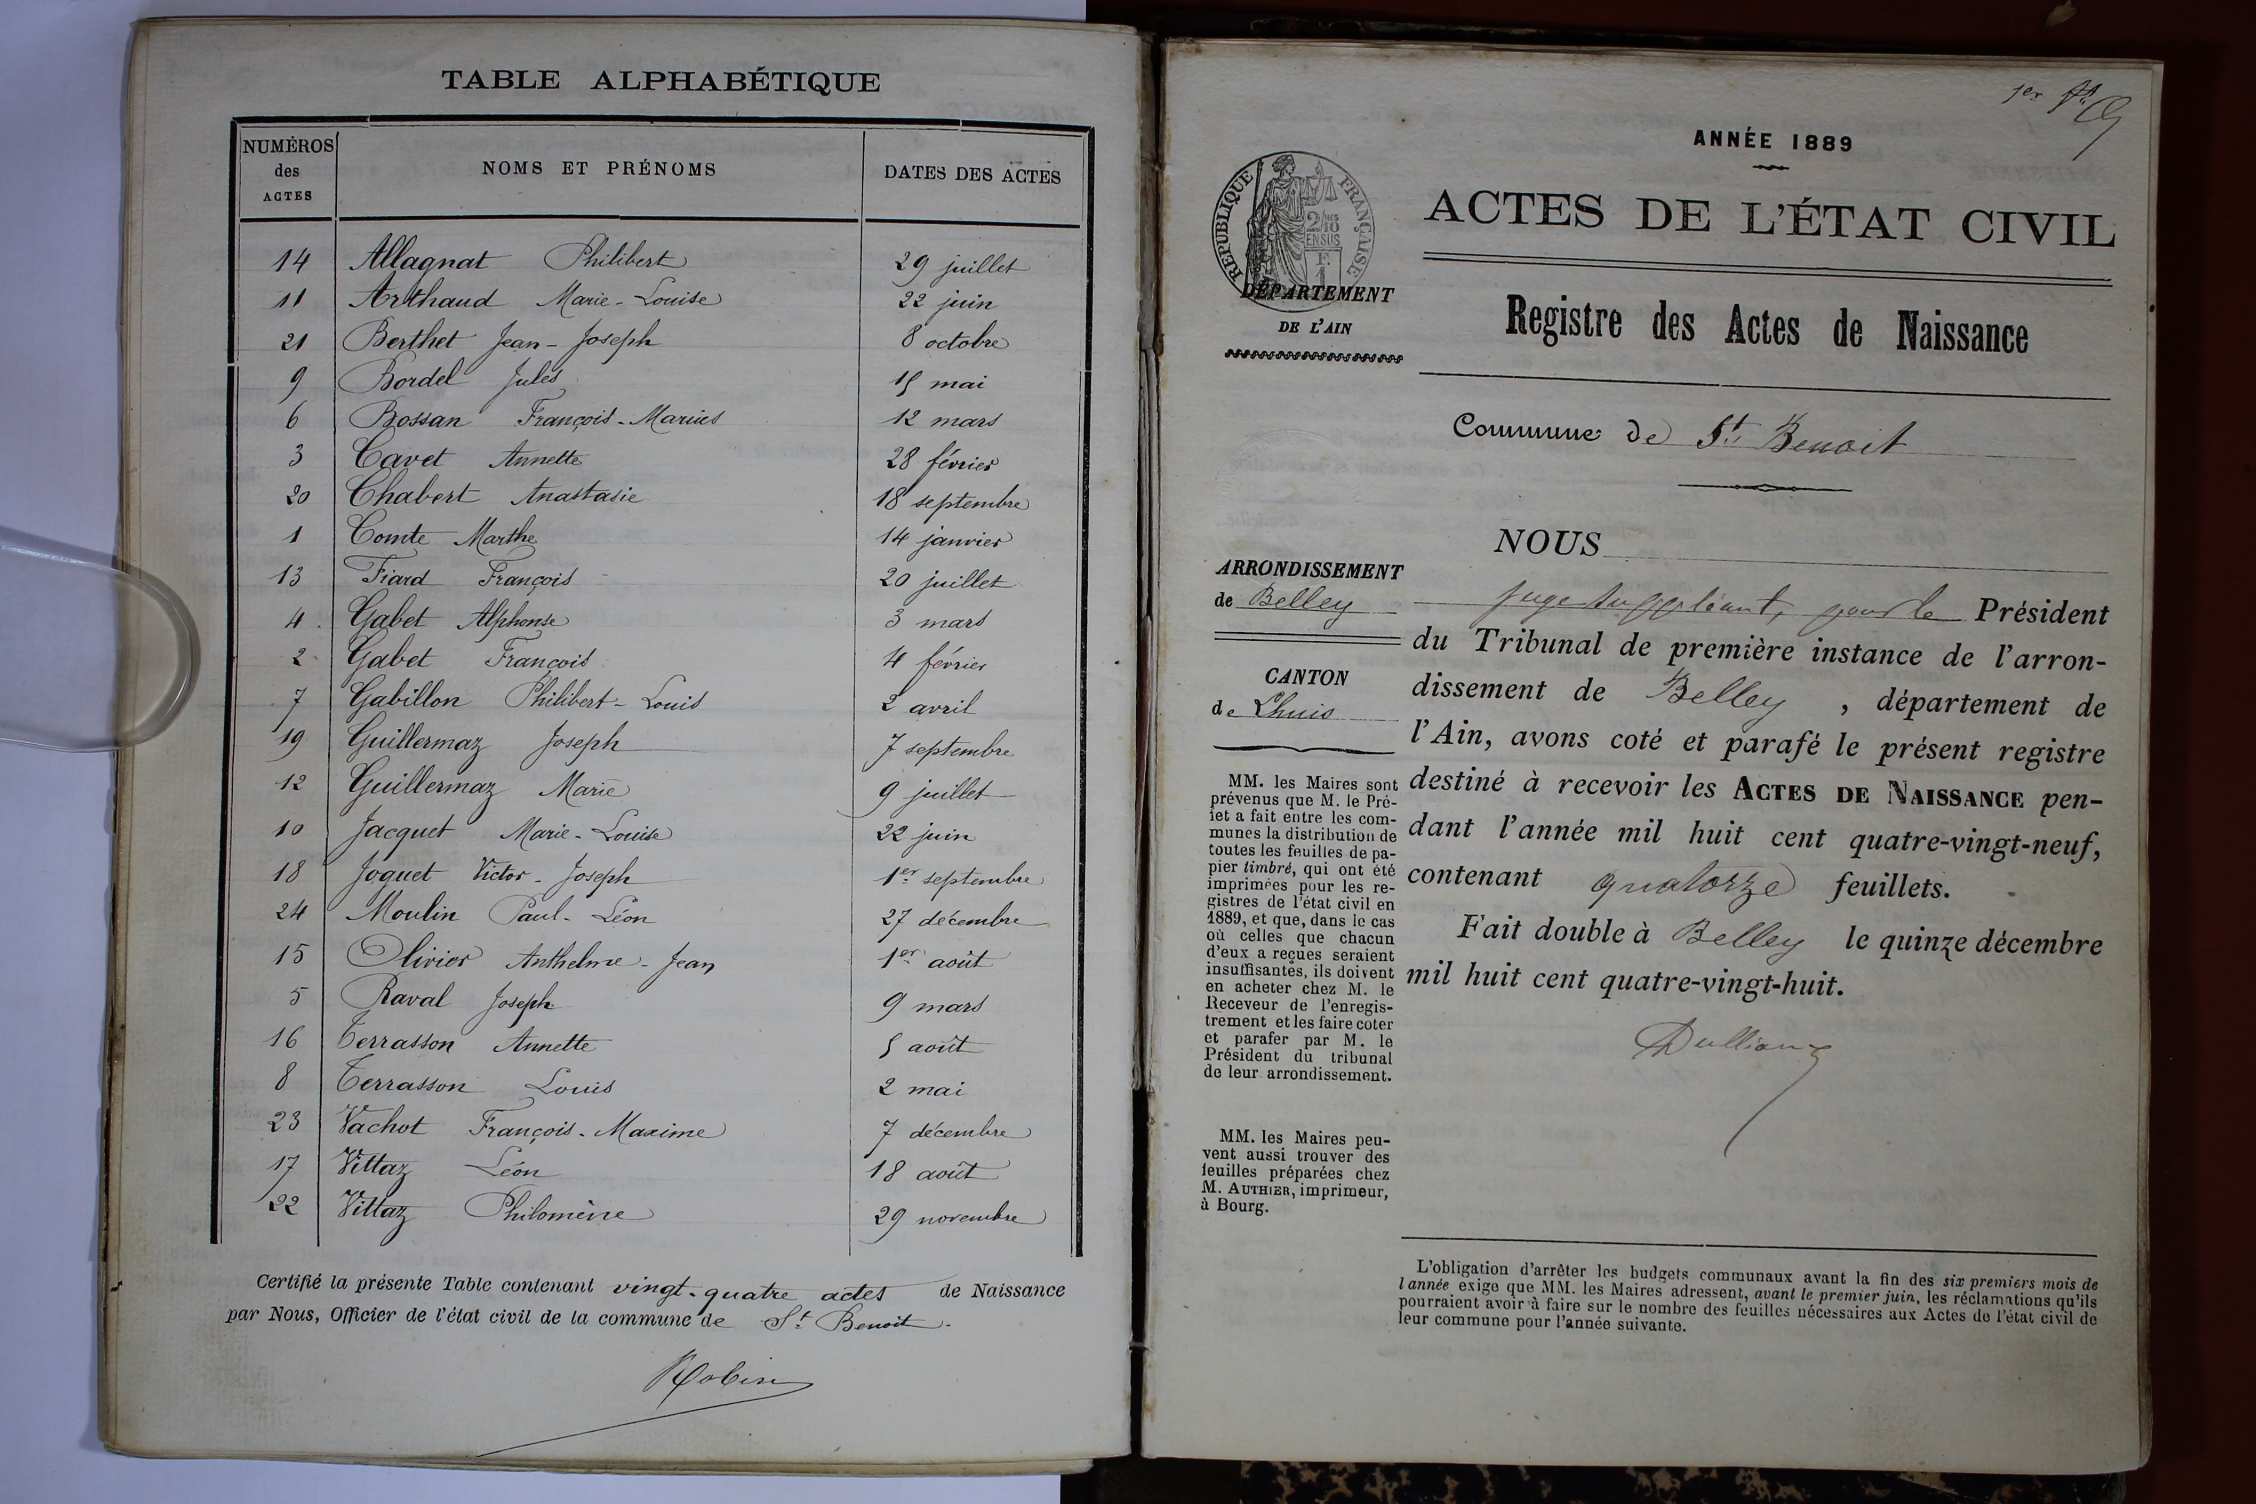 TABLE ALPHABÉTIQUE
NUMÉROS des ACTES NOMS ET PRÉNOMS DATES DES ACTES
14 Allagnat Philibert 29 juillet
11 Arthaud Marie-Louise 22 juin
21 Berthet Jean-Joseph 8 octobre
9 Bordel Jules 15 mai
6 Bossan François-Marius 12 mars
3 Cavet Annette 28 février
20 Chabert Anastasie 18 septembre
1 Comte Marthe 14 janvier
13 Fiard François 20 juillet
4 Gabet Alphonse 3 mars
2 Gabet François 4 février
7 Gabillon Philibert-Louis 2 avril
19 Guillermaz Joseph 7 septembre
12 Guillermaz Marie 9 juillet
10 Jacquet Marie-Louise 22 juin
18 Joguet Victor-Joseph 1er septembre
24 Moulin Paul-Léon 27 décembre
15 Olivier Anthelme-Jean 1er août
5 Raval Joseph 9 mars
16 Terrasson Annette 5 août
8 Terrasson Louis 2 mai
23 Vachot François-Maxime 7 décembre
17 Vittaz Léon 18 août
22 Vittaz Philomène 29 novembre
Certifié la présente Table contenant vingt-quatre actes de Naissance
par Nous, Officier de l'état civil de la commune de St Benoit.
Robin
1er ft
ANNÉE 1889
RÉPUBLIQUE FRANÇAISE
2/10 EN SUS
F. 1
ACTES DE L'ÉTAT CIVIL
DÉPARTEMENT
DE L'AIN
Registre des Actes de Naissance
Commune de St Benoit
ARRONDISSEMENT
de Belley
CANTON
de Lhuis
MM. les Maires sont
prévenus que M. le Pré-
fet a fait entre les com-
munes la distribution de
toutes les feuilles de pa-
pier timbré, qui ont été
imprimées pour les re-
gistres de l'état civil en
1889, et que, dans le cas
où celles que chacun
d'eux a reçues seraient
insuffisantes, ils doivent
en acheter chez M. le
Receveur de l'enregis-
trement et les faire coter
et parafer par M. le
Président du tribunal
de leur arrondissement.
MM. les Maires peu-
vent aussi trouver des
feuilles préparées chez
M. AUTHIER, imprimeur,
à Bourg.
NOUS
juge suppléant, pour le Président
du Tribunal de première instance de l'arron-
dissement de Belley, département de
l'Ain, avons coté et parafé le présent registre
destiné à recevoir les ACTES DE NAISSANCE pen-
dant l'année mil huit cent quatre-vingt-neuf,
contenant quatorze feuillets.
Fait double à Belley le quinze décembre
mil huit cent quatre-vingt-huit.
L'obligation d'arrêter les budgets communaux avant la fin des six premiers mois de
l'année exige que MM. les Maires adressent, avant le premier juin, les réclamations qu'ils
pourraient avoir à faire sur le nombre des feuilles nécessaires aux Actes de l'état civil de
leur commune pour l'année suivante.